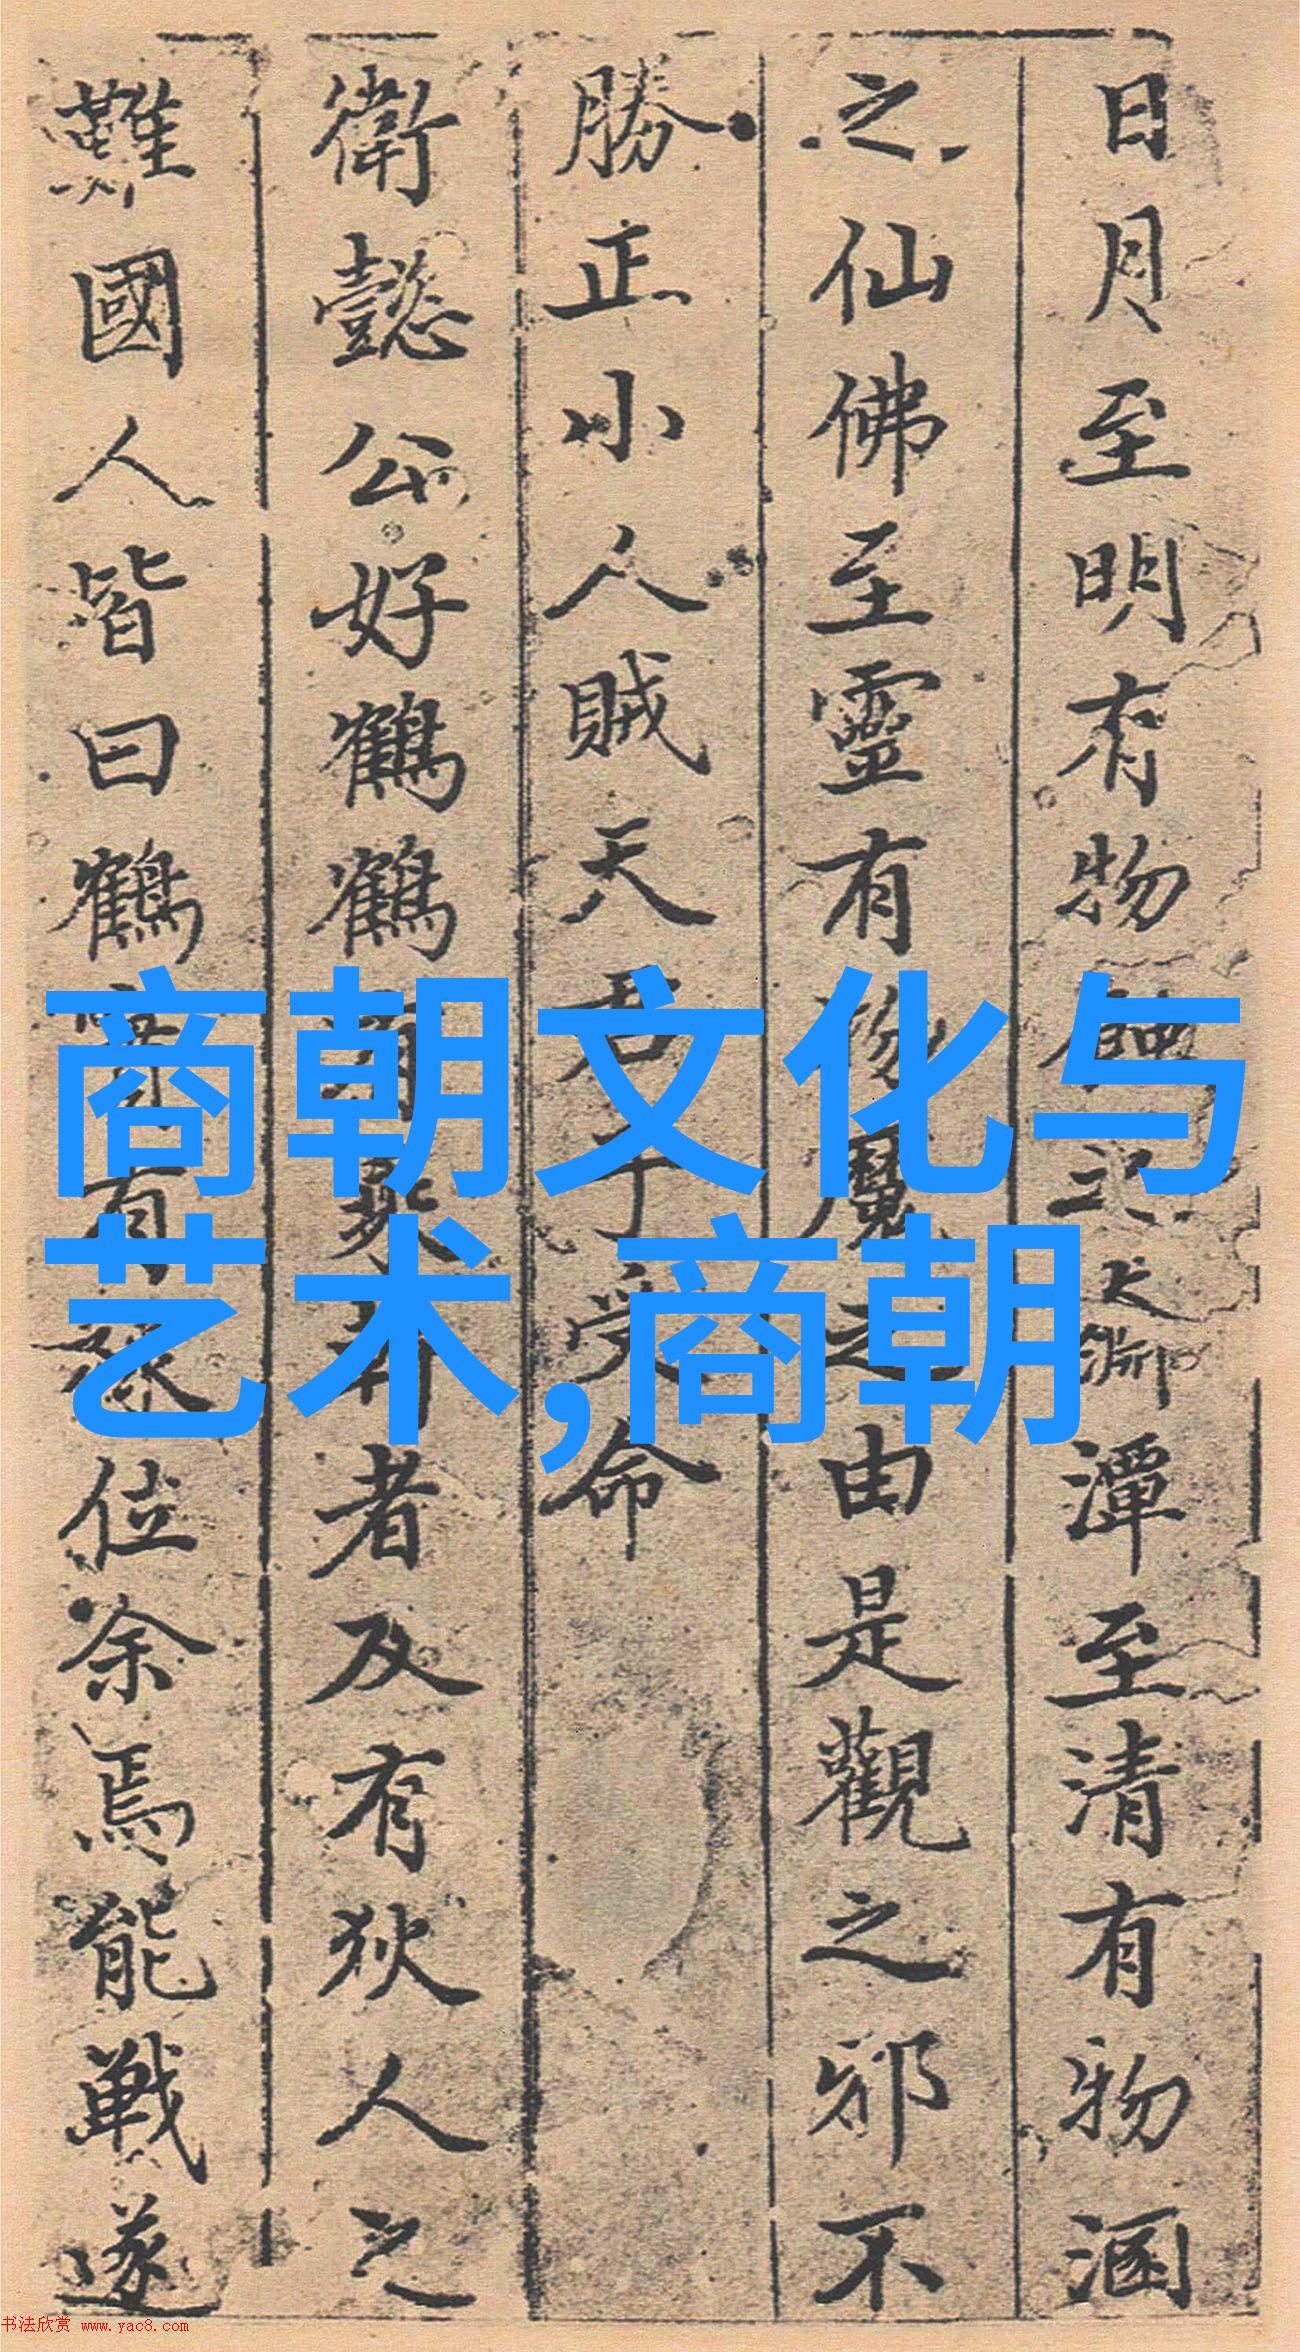 日月至明有物潭至清有物涵
之仙佛至靈有魔之由是觀之邪不
勝正小人賊天君子受命
衛懿公好鶴鶴者及有狄人之
難國人皆曰鶴有位余焉能戰遂
商朝文化与
艺术,商朝
书法欣赏 www.yac8.com